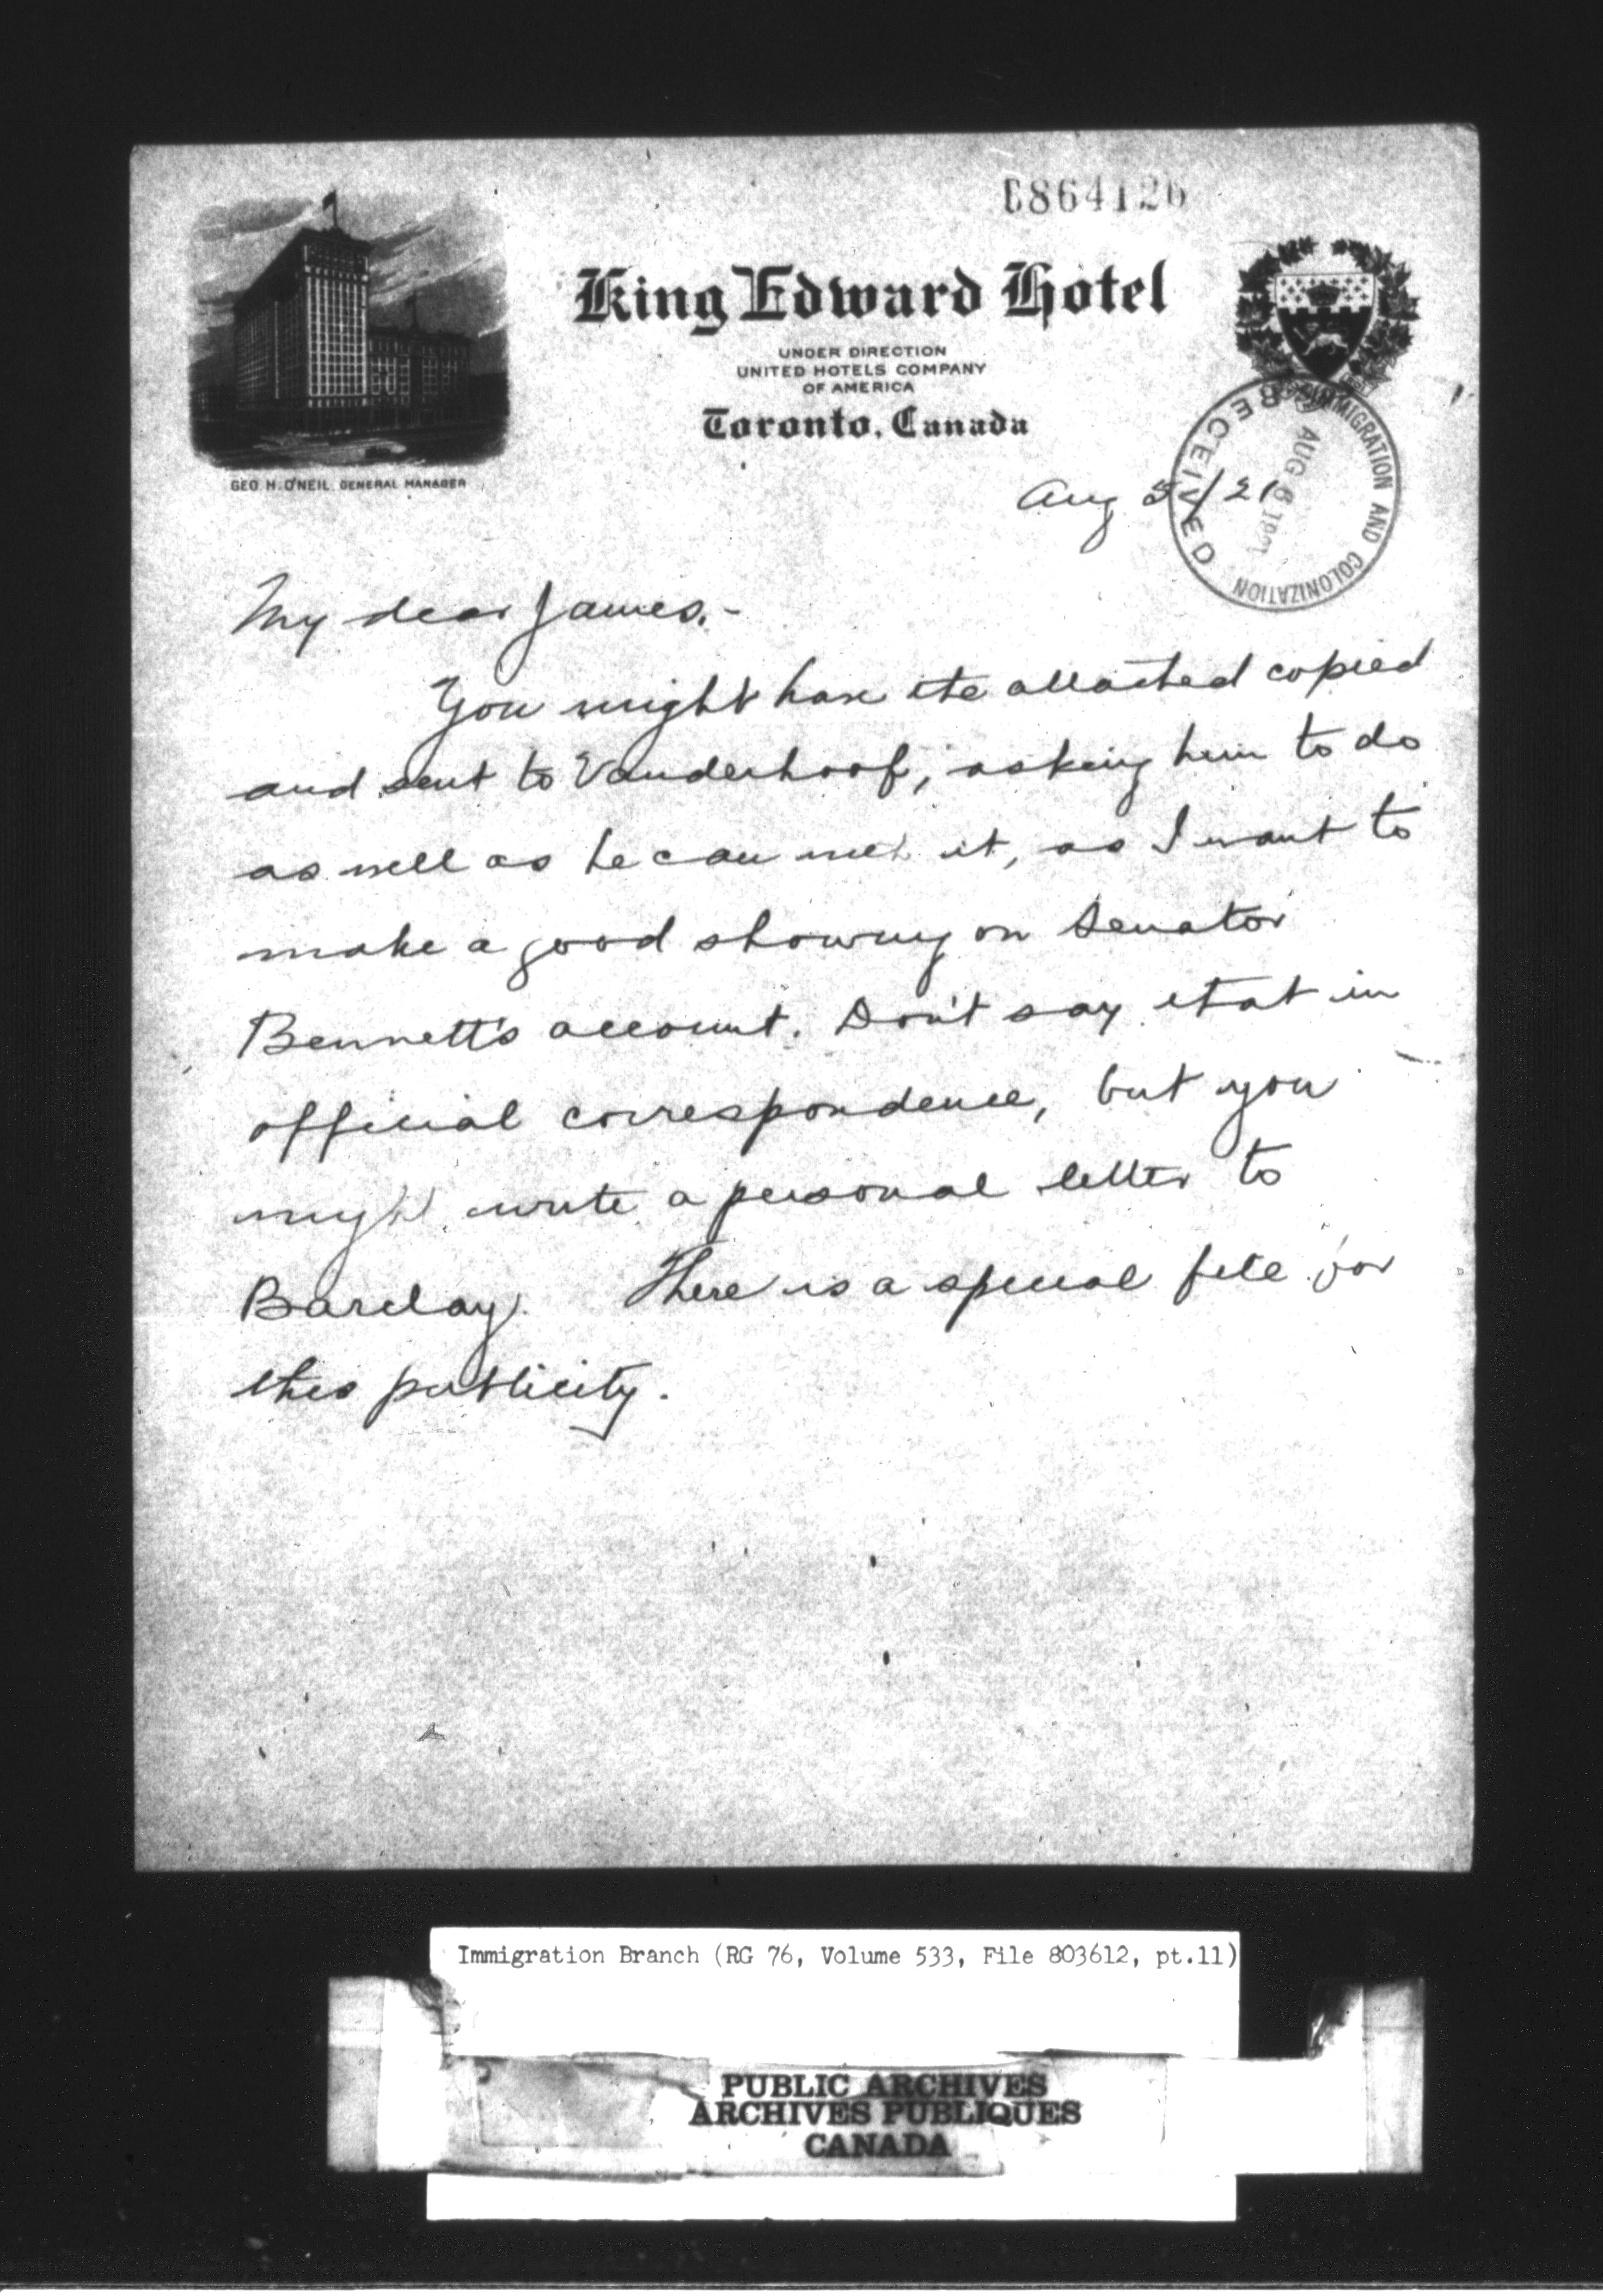 C864126
King Edward Hotel
UNDER DIRECTION
UNITED HOTELS COMPANY
OF AMERICA
Toronto, Canada
GEO. H. O'NEIL, GENERAL MANAGER
RECEIVED
IMMIGRATION AND COLONIZATION
AUG 6 1921
Aug 5/21
My dear James.-
You might have the attached copied
and sent to Vanderhoof, asking him to do
as well as he can with it, as I want to
make a good showing on Senator
Bennett's account. Don't say that in
official correspondence, but you
might write a personal letter to
Barclay. There is a special file for
this publicity.
Immigration Branch (RG 76, Volume 533, File 803612, pt.11)
PUBLIC ARCHIVES
ARCHIVES PUBLIQUES
CANADA